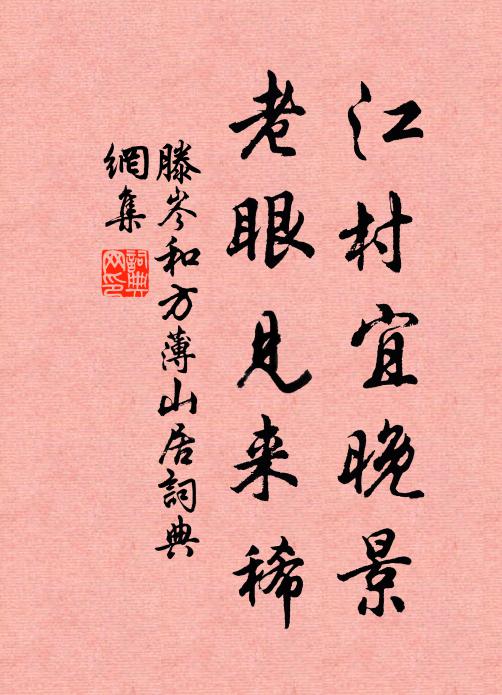 江村宜晚景
老眼見来稀
滕岑和方薄山居詞典
網集
詞典
网印